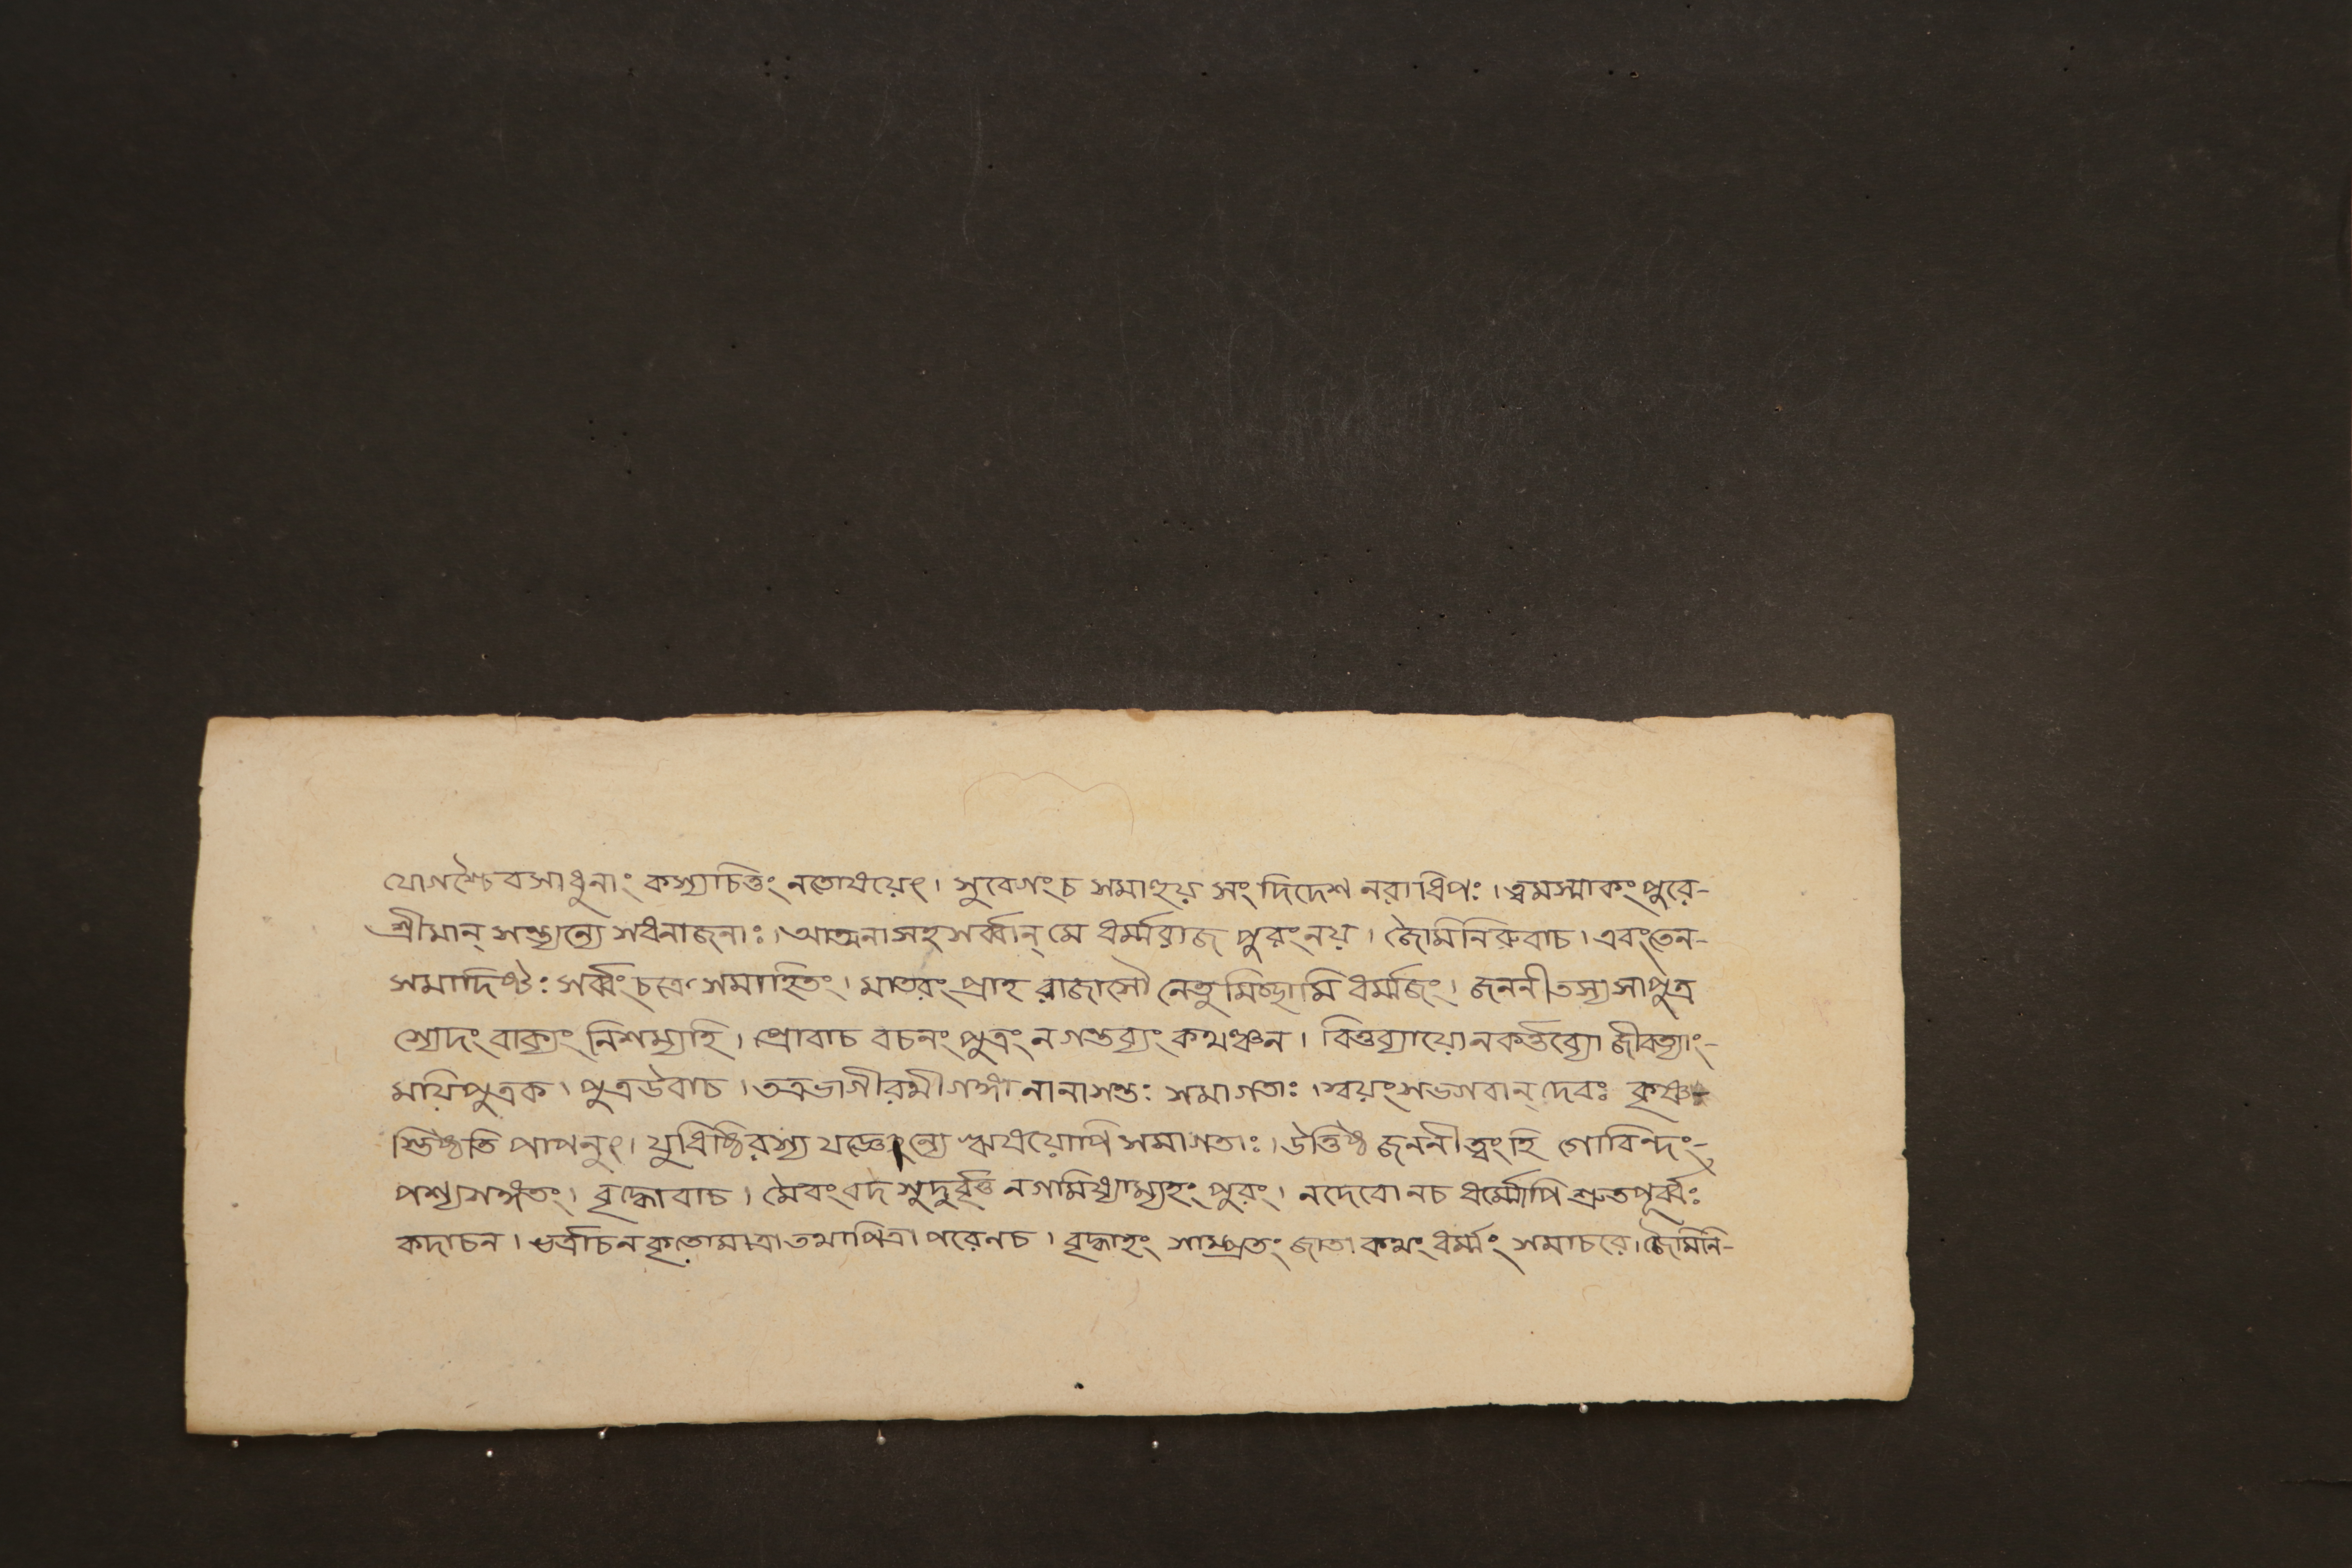 যোগশ্চৈবসাধুনাং কস্যচিত্তং নতোষয়েৎ। সুবেগংচ সমাহুয় সংদিদেশ নরাধিপঃ। ত্বমস্মাকংপুরে-
শ্রীমান্ সন্ত্যন্যে সধনাজনাঃ। আত্মনাসহসর্ব্বান্ মে ধর্ম্মরাজ পুরংনয়। জৈমিনিরুবাচ। এবংতেন-
সমাদিষ্টঃ সর্ব্বংচক্রে সমাহিতং। মাতরংপ্রাহ রাজাসৌ নেতুমিচ্ছামি ধর্ম্মজং। জননীতস্যসাপুত্র
স্যেদংবাক্যং নিশম্যহি। প্রোবাচ বচনং পুত্রং নগন্তব্যং কথঞ্চন। বিত্তব্যায়োনকর্ত্তব্যো জীবন্ত্যাং-
ময়িপুত্রক। পুত্রউবাচ। তত্রভাগীরথীগঙ্গা নানাসন্তঃ সমাগতাঃ। স্বয়ংসভগবান্ দেবঃ কৃষ্ণ
স্তিষ্ঠতি পাপনুৎ। যুধিষ্ঠিরস্য যজ্ঞেন্যে ঋষয়োপিসমাগতাঃ। উত্তিষ্ঠ জননীত্বংহি গোবিন্দং-
পশ্যসঙ্গতং। বৃদ্ধোবাচ। মৈবংবদ সুদুর্বৃত্ত নগমিষ্যাম্যহং পুরং। নদেবোনচ ধর্ম্মোপি শ্রুতপূর্ব্বঃ
কদাচন। ভর্ত্রাচনকৃতোমাত্রাতথাপিত্রাপরেনচ। বৃদ্ধাহং সাম্প্রতং জাতা কথং ধর্ম্মং সমাচরে। জৈমিনি-